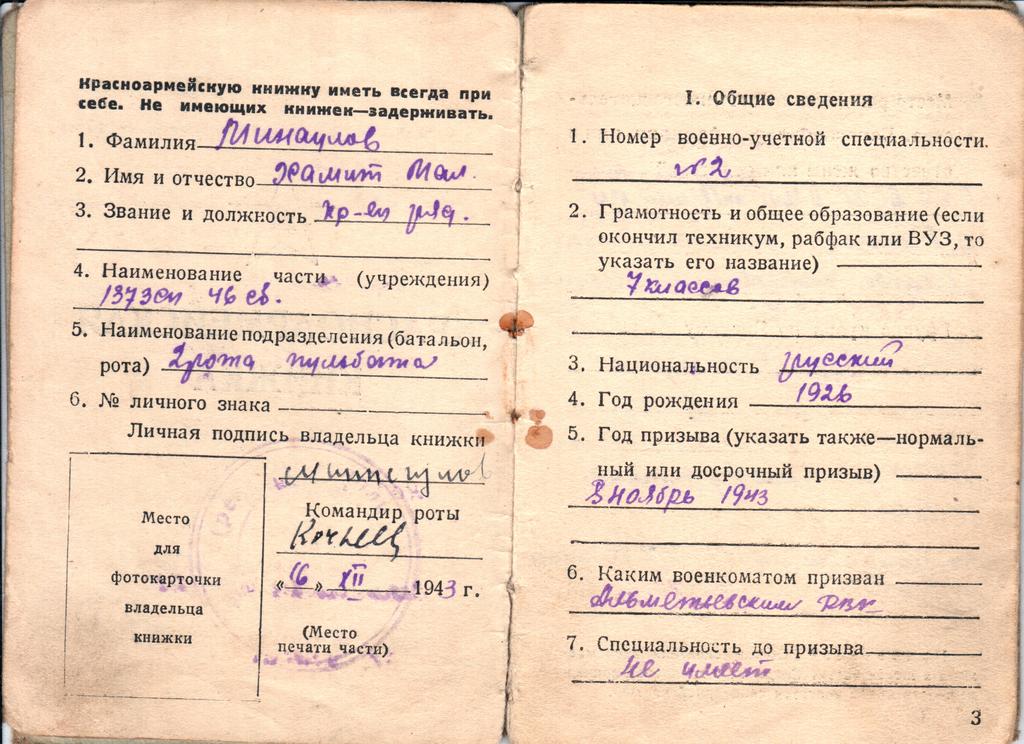 Красноармейскую книжку иметь всегда при
себе. Не имеющих книжек—задерживать.
1. Фамилия Минаулов
2. Имя и отчество Хамит Мал.
3. Звание и должность кр-ец ряд.
4. Наименование части (учреждения)
137зсп 46 сб.
5. Наименование подразделения (батальон,
рота) 2рота пульбата
6. № личного знака
Личная подпись владельца книжки
Место
для
фотокарточки
владельца
книжки
Командир роты
«16» XII 1943 г.
(Место
печати части)
I. Общие сведения
1. Номер военно-учетной специальности.
№2
2. Грамотность и общее образование (если
окончил техникум, рабфак или ВУЗ, то
указать его название)
7 классов
3. Национальность русский
4. Год рождения 1926
5. Год призыва (указать также—нормаль-
ный или досрочный призыв)
ноябрь 1943
6. Каким военкоматом призван
Альметьевским РВК
7. Специальность до призыва
не имеет
3